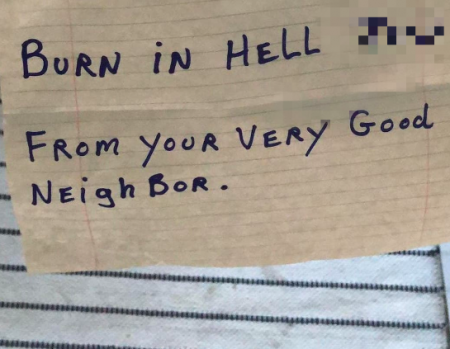 BURN iN HELL
FROM YOUR VERY Good
NEighBOR.